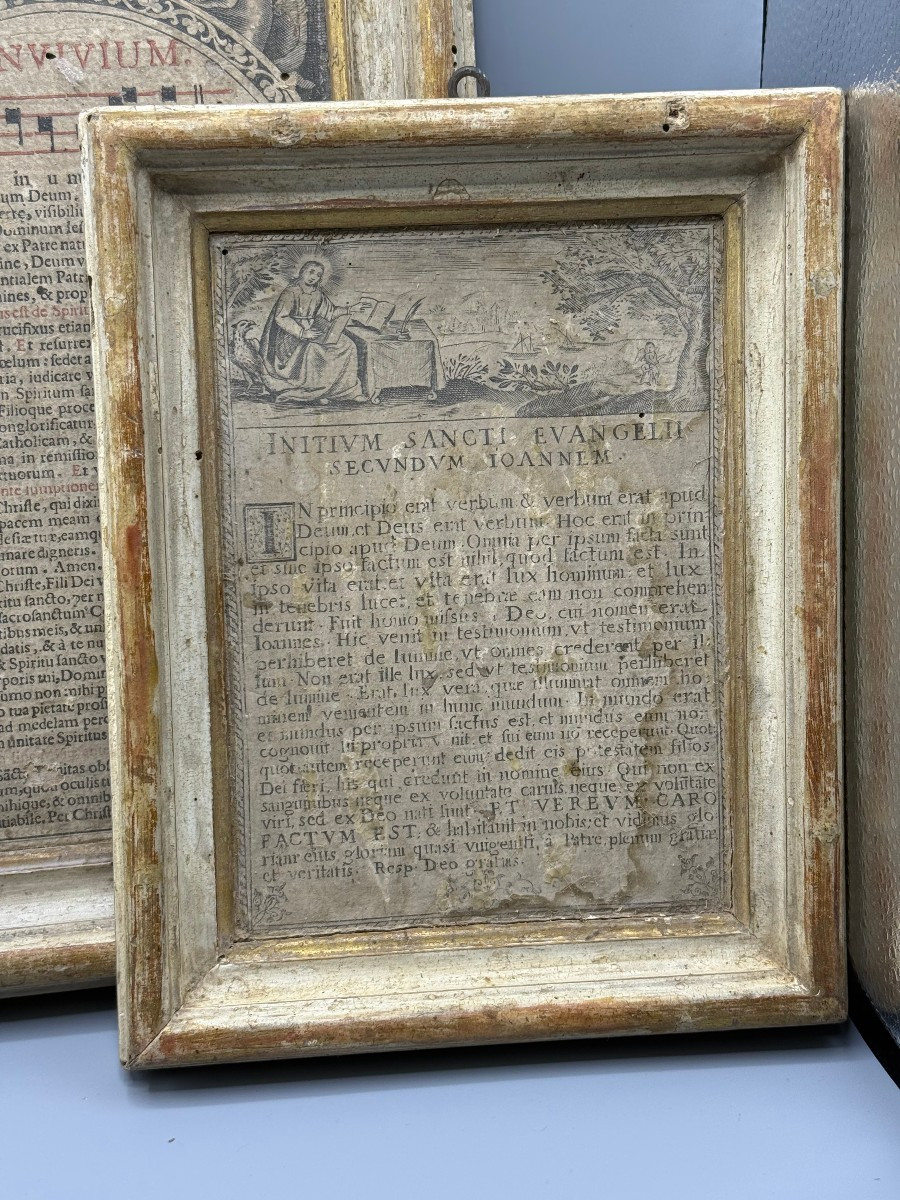 NVIVIUM.
in u
um Deum.
erre, visibili
Dominum Ies
ex Patre nat
ine, Deum v
ntialem Patr
ines, & prop
est de Spirit
rucifixus etian
t. Et resurrex
cœlum: sedet a
ria, iudicare v
n Spiritum sa
Filioque proce
onglorificatur
Catholicam, &
ma in remissio
rtuorum. Et v
Christe, qui dixi
pacem meam
mare digneris.
orum. Amen.
Christe, Fili Dei v
ritu sancto, per
sacrosanctum C
tibus meis, & un
datis, & à te nu
& Spiritu sancto v
poris tui, Domin
umo non mihi p
o tua pietate pros
ad medelam perc
n vnitate Spiritus
um, quod oculis tu
mihique, & omnib
tiabile, Per Christ
INITIVM SANCTI EVANGELII
SECVNDVM IOANNEM
IN principio erat verbum & verbum erat apud
Deum, et Deus erat verbum. Hoc erat in prin
cipio apud Deum. Omnia per ipsum facta sunt
et sine ipso factum est nihil, quod factum est. In
ipso vita erat, et vita erat lux hominum: et lux
in tenebris lucet, et tenebræ eam non comprehen
derunt. Fuit homo missus à Deo, cui nomen erat
Ioannes. Hic venit in testimonium, vt testimonium
perhiberet de lumine, vt omnes crederent per il
lum. Non erat ille lux, sed vt testimonium perhiberet
de lumine. Erat lux vera, quæ illuminat omnem ho
minem venientem in hunc mundum. In mundo erat
et mundus per ipsum factus est, et mundus eum non
cognouit. In propria venit, et sui eum no receperunt. Quot
quot autem receperunt eum, dedit eis potestatem filios
Dei fieri, his qui credunt in nomine eius. Qui non ex
sanguinibus neque ex voluntate carnis, neque ex volūtate
viri, sed ex Deo nati sunt. ET VERBVM CARO
FACTVM EST, & habitauit in nobis: et vidimus glo
riam eius, gloriam quasi vnigeniti, à Patre, plenum gratiæ
et veritatis. Resp. Deo gratias.